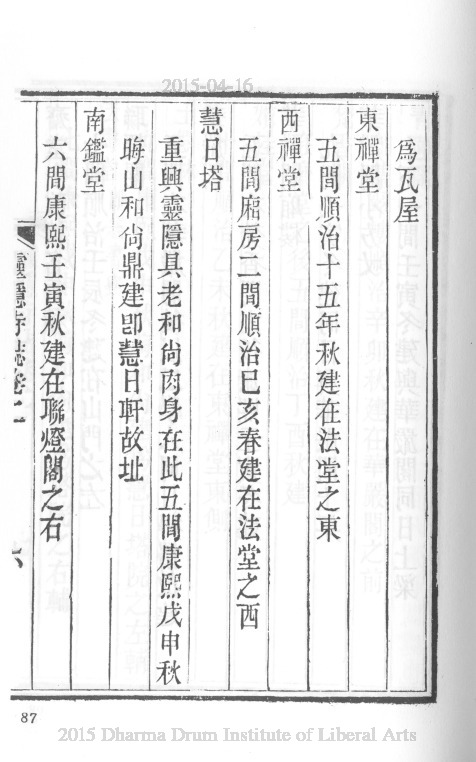 2015-04-16
爲瓦屋
東禪堂
五間順治十五年秋建在法堂之東
西禪堂
五間廂房二間順治己亥春建在法堂之西
慧日塔
重興靈隱具老和尚肉身在此五間康熙戊申秋
晦山和尚鼎建卽慧日軒故址
南鑑堂
六間康熙壬寅秋建在聯燈閣之右
靈隱寺誌卷二
六
87
2015 Dharma Drum Institute of Liberal Arts